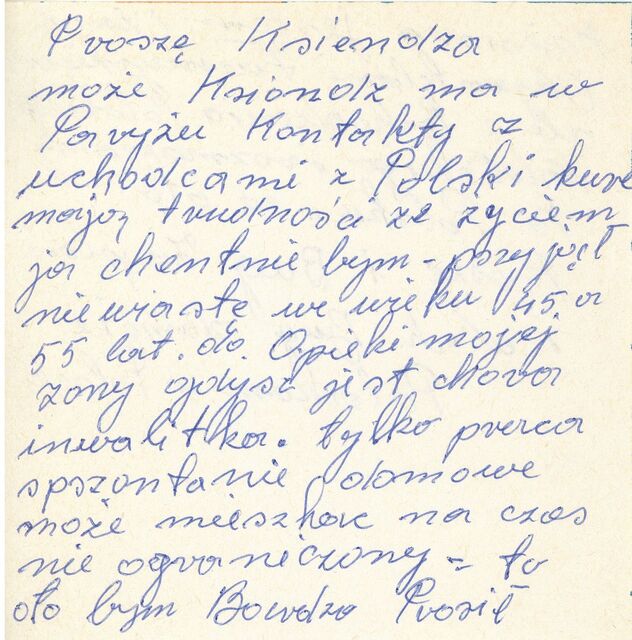 Proszę Ksiendza
może Ksiondz ma w
Paryżu Kontakty z
uchodcami z Polski kure
majoz trudności ze życiem
ja chentnie bym - pszyjął
niewiastę w wieku 45 a
55 lat. do. Opieki mojej
zony gdysz jest chora
inwalitka. tylko praca
spszontanie domowe
może mieszkac na czas
nie ograniczony = to
oto bym Bardzo Prosił